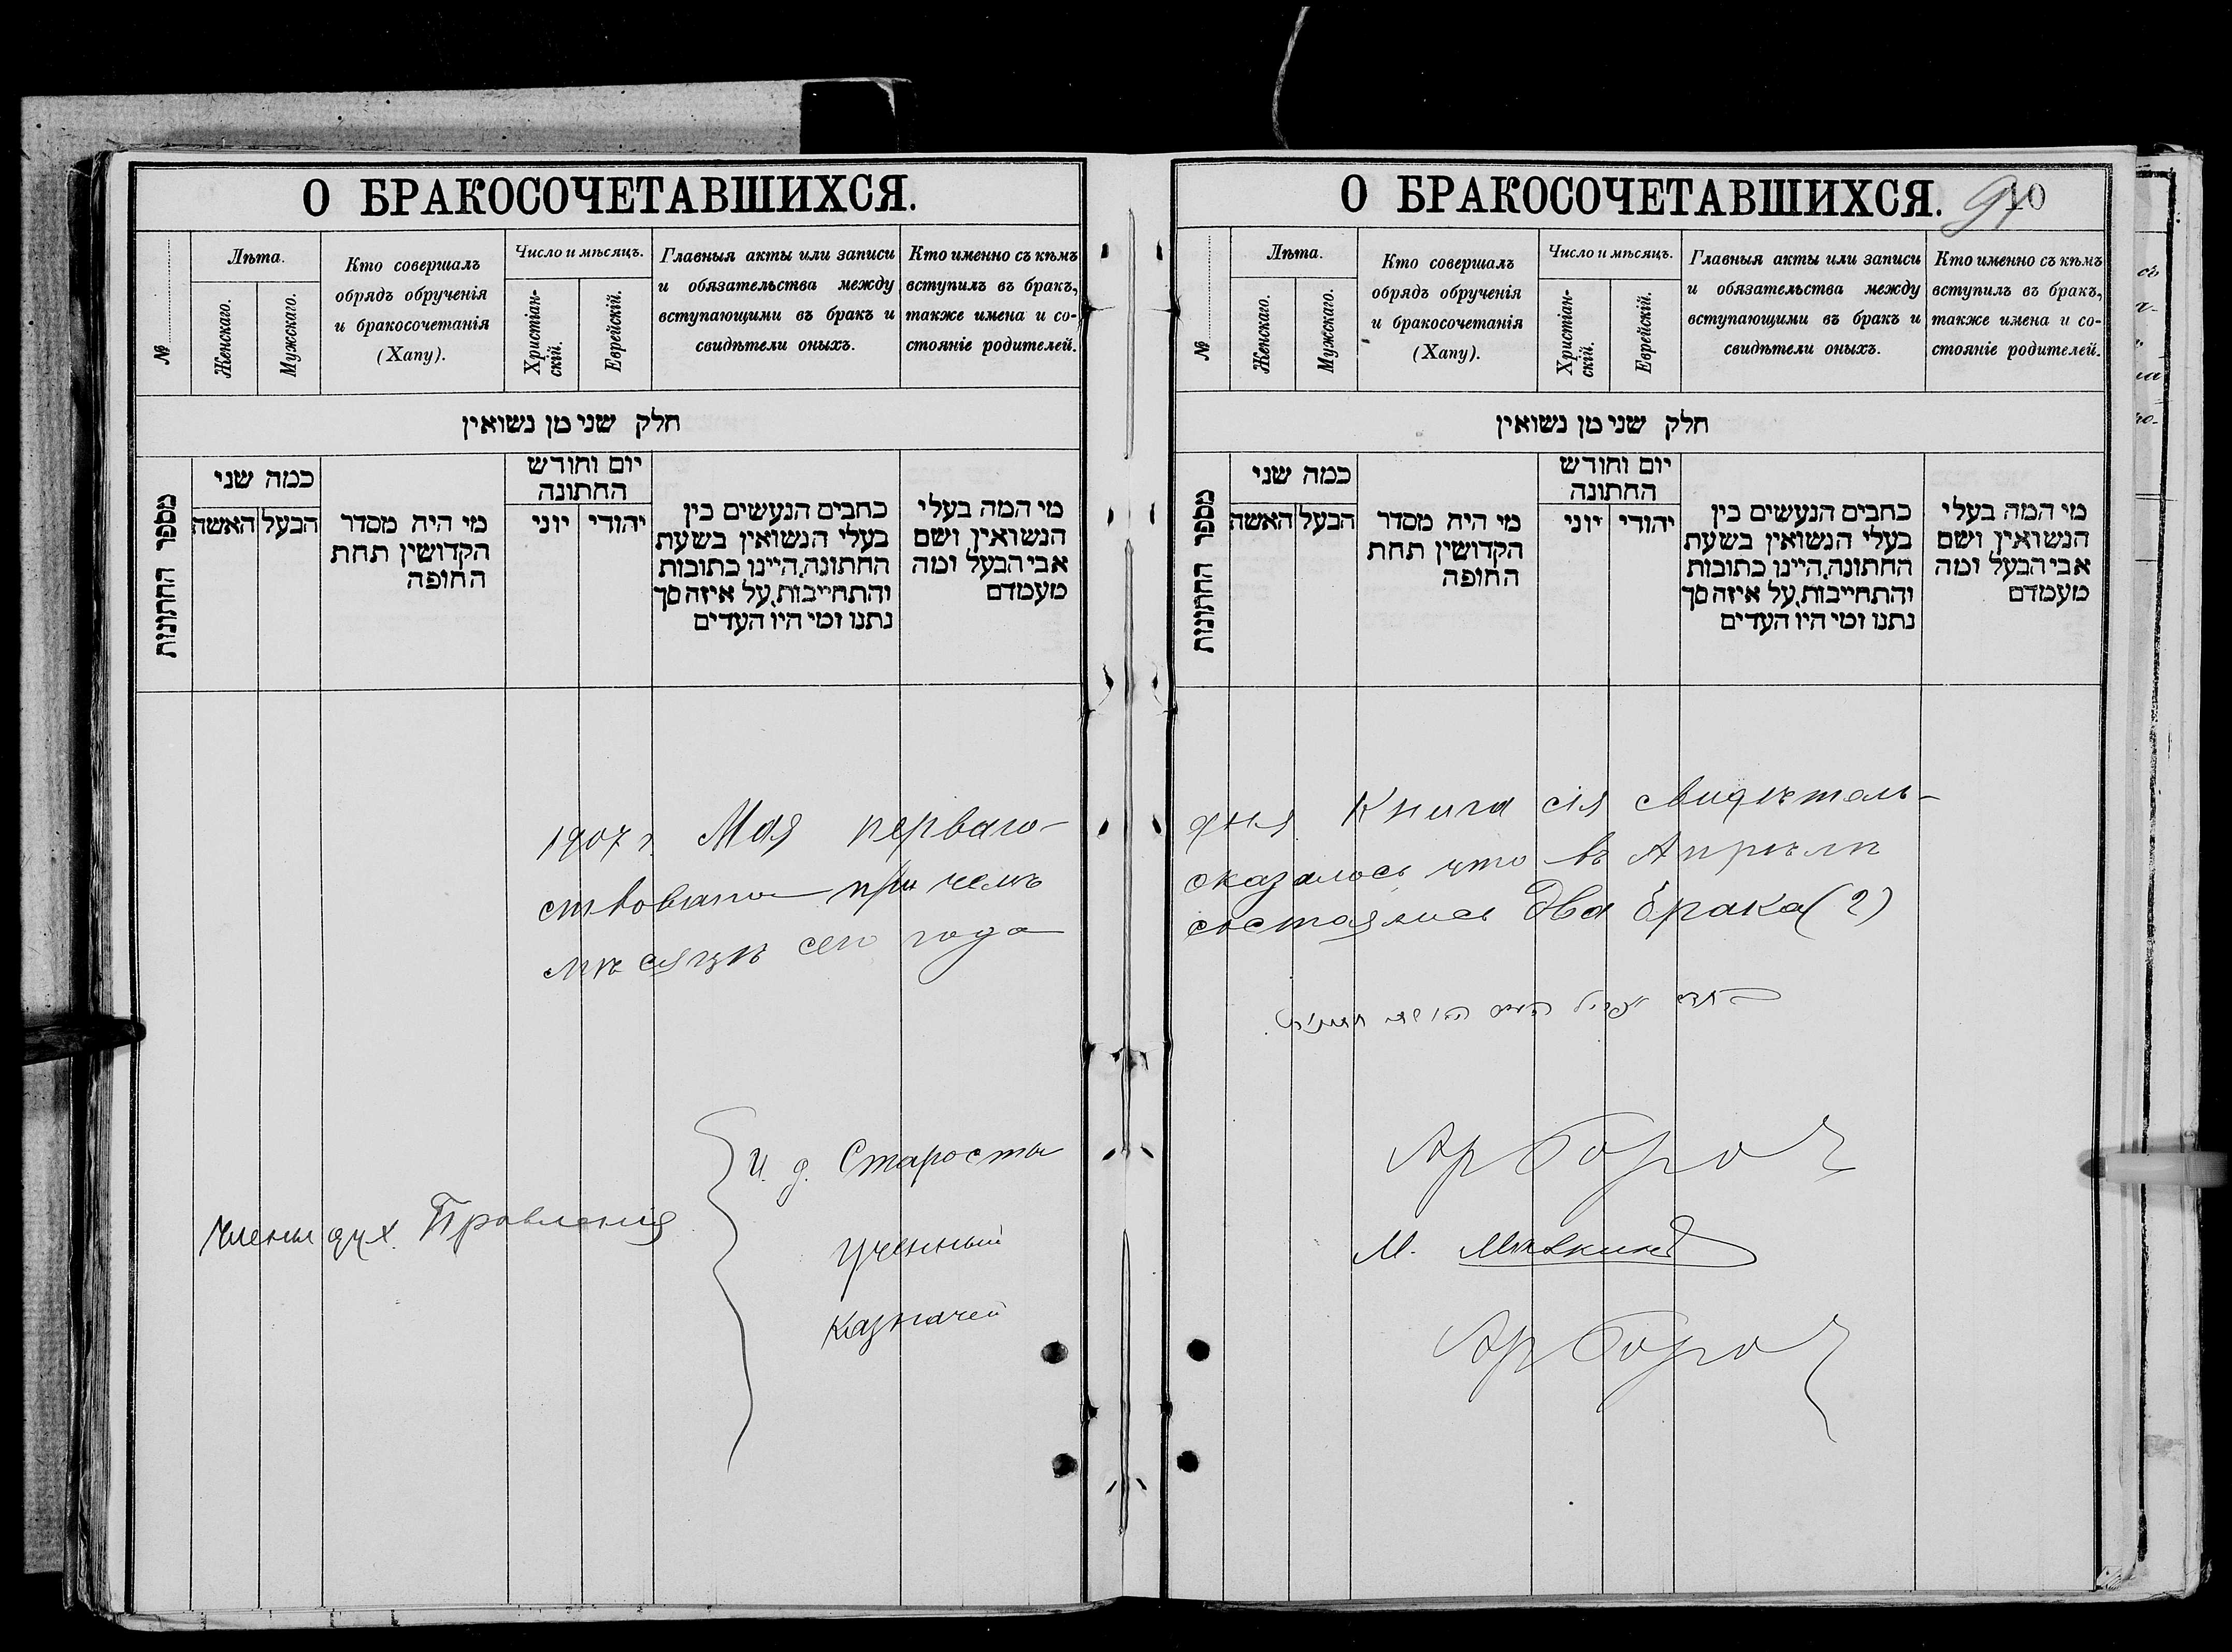 О БРАКОСОЧЕТАВШИХСЯ.
№
Лѣта.
Женскаго.
Мужскаго.
Кто совершалъ
обрядъ обрученія
и бракосочетанія
(Хапу).
Число и мѣсяцъ.
Христіан-
скій.
Еврейскій.
Главныя акты или записи
и обязательства между
вступающими въ бракъ и
свидѣтели оныхъ.
Кто именно съ кѣмъ
вступилъ въ бракъ,
также имена и со-
стояніе родителей.
חלק שני מן נשואין
מספר החתונות
כמה שני
הבעל
האשה
מי היה מסדר
הקדושין תחת
החופה
יום וחודש
החתונה
יהודי
יוני
כתבים הנעשים בין
בעלי הנשואין בשעת
החתונה, היינו כתובות
והתחייבות, על איזה סך
נתנו ומי היו העדים
מי המה בעלי
הנשואין ושם
אבי הבעל ומה
מעמדם
1907 г. Мая перваго
ствована при чемъ
мѣсяцѣ сего года
Члены дух. Правленія
И. д. Старосты
Ученный
Казначей
О БРАКОСОЧЕТАВШИХСЯ.
40
№
Лѣта.
Женскаго.
Мужскаго.
Кто совершалъ
обрядъ обрученія
и бракосочетанія
(Хапу).
Число и мѣсяцъ.
Христіан-
скій.
Еврейскій.
Главныя акты или записи
и обязательства между
вступающими въ бракъ и
свидѣтели оныхъ.
Кто именно съ кѣмъ
вступилъ въ бракъ,
также имена и со-
стояніе родителей.
חלק שני מן נשואין
מספר החתונות
כמה שני
הבעל
האשה
מי היה מסדר
הקדושין תחת
החופה
יום וחודש
החתונה
יהודי
יוני
כתבים הנעשים בין
בעלי הנשואין בשעת
החתונה, היינו כתובות
והתחייבות, על איזה סך
נתנו ומי היו העדים
מי המה בעלי
הנשואין ושם
אבי הבעל ומה
מעמדם
дня Книга сія свидѣтель-
оказалось что въ Апрѣлѣ
состоялись два брака (2)
М.